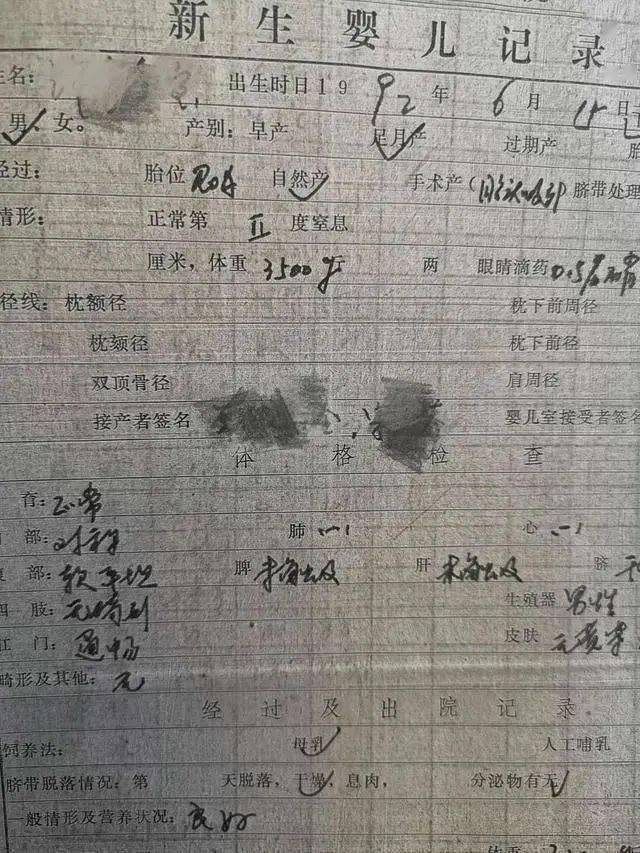 新生婴儿记录
姓名: 出生时日19 92 年 6 月 15 日
男、女。 产别：早产 足月产 过期产 胎
经过： 胎位 自然产 手术产（胎头吸引）脐带处理
情形： 正常第 II 度窒息
厘米，体重 3500 g 斤 两 眼睛滴药 0.5
径线：枕额径 枕下前周径
枕颏径 枕下前径
双顶骨径 肩周径
接产者签名 婴儿室接受者签名
体格检查
育：正常
部：对称 肺 (-) 心 (-)
腹部：软平坦 脾 未触及 肝 未触及 脐
四肢：无畸形 生殖器 男性
肛门：通畅 皮肤 无黄
畸形及其他：无
经过及出院记录
饲养法： 母乳 人工哺乳
脐带脱落情况：第 天脱落，干燥，息肉， 分泌物有无
一般情形及营养状况：良好
体重